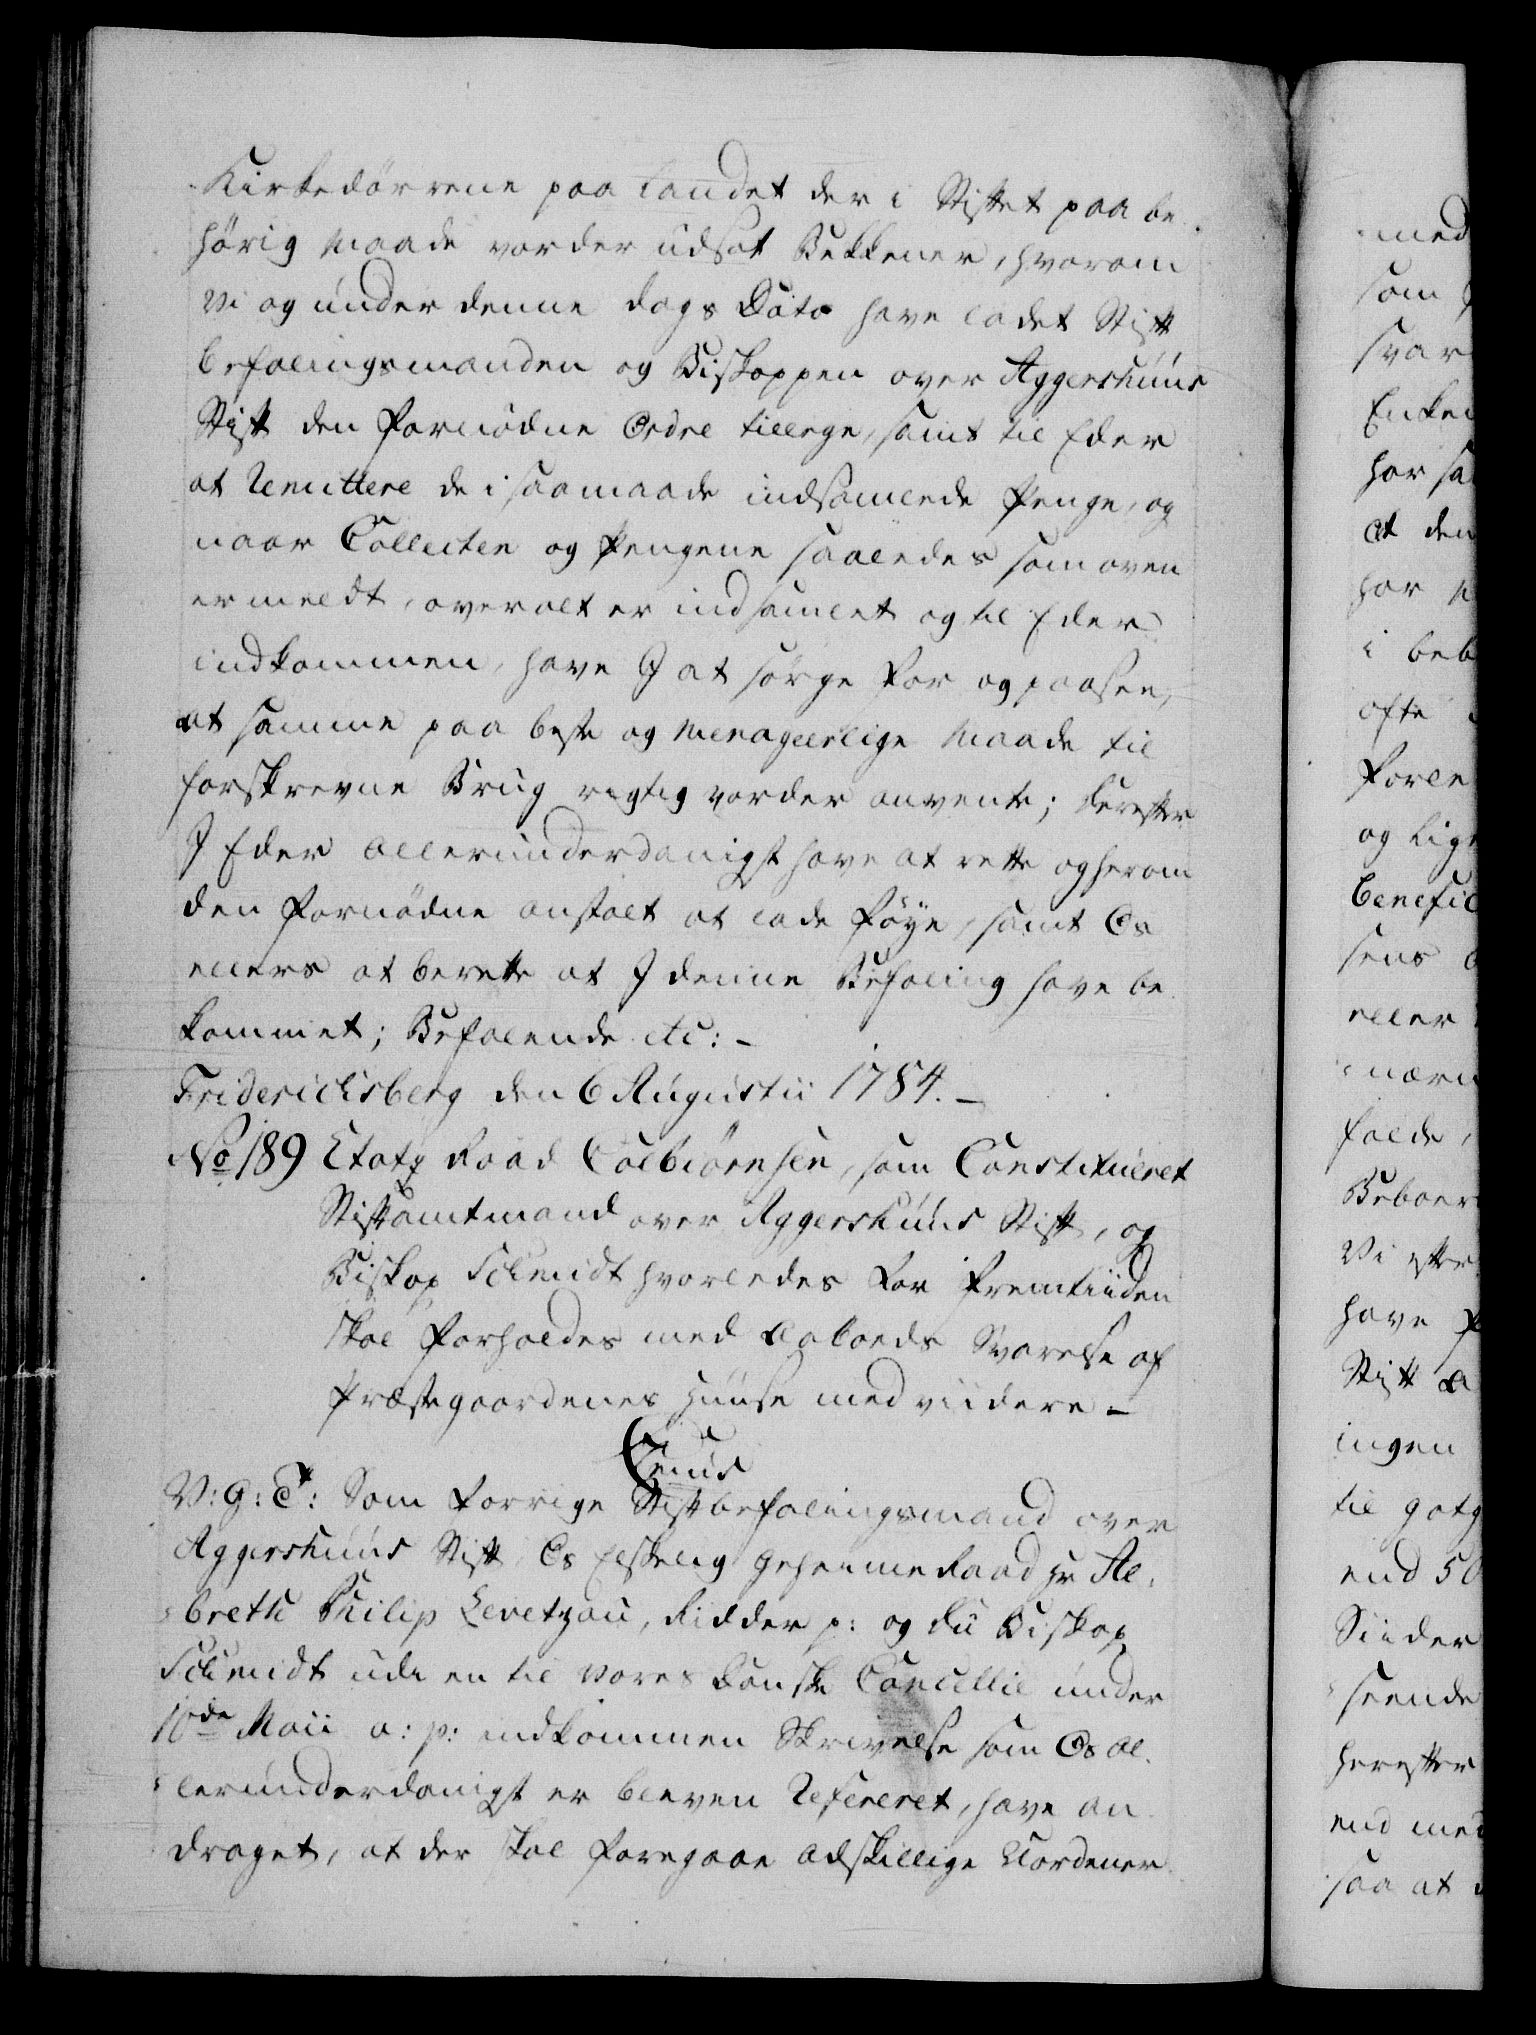 Kirkedørrene paa Landet der i Stiftet paa be
hørig Maade vorder udsat Bekkener, hvorom
Vi og under denne Dags Dato have ladet Stift
befalingsmanden og Biskoppen over Aggershuus
Stift den fornødne Ordre tillege, samt til Eder
at Remittere de i saamaade indsamlede Penge, og
naar Collecten og Pengene saaledes som oven
ermeldt, overalt er indsamlet og til Eder
indkommen, have I at sørge for og paasee,
at samme paa beste og menageerlige Maade til
forskrevne Brug rigtig vorder anvendt; Derefter
I Eder allerunderdanigst have at rette og herom
den fornødne anstalt at lade føye, samt Os
ellers at berette at I denne Befaling have be
kommet; Befalende etc: -
Friderichsberg den 6 Augustii 1784. -
No 189 Etatz Raad Colbiørnsen, som Constitueret
Stiftamtmand over Aggershuus Stift, og
Biskop Schmidt hvorledes for Fremtiiden
skal forholdes med Aaboeds Svarelse af
Præstegaardenes Huuse med viidere -
CMus
V: G: T: Som forrige Stiftbefalingsmand over
Aggershuus Stift Os Elskelig Geheime Raad Hr Al,
breth Philip Levetzau, Ridder p: og du Biskop
Schmidt udi en til Vores Danske Cancellie under
10de Maii a: p: indkommen Skrivelse som Os al,
lerunderdanigst er bleven Refereret, have an
draget, at der skal foregaae adskillige Uordener
med
som
svar
Enke
har sa
at den
har
i beb
ofte
forle
og lig
benefic
sens
eller
nærv
falde,
Beboer
Vi efter
have
Stift
ingen
til gotg
end 50
Siider
seende
herefter
end med
saa at